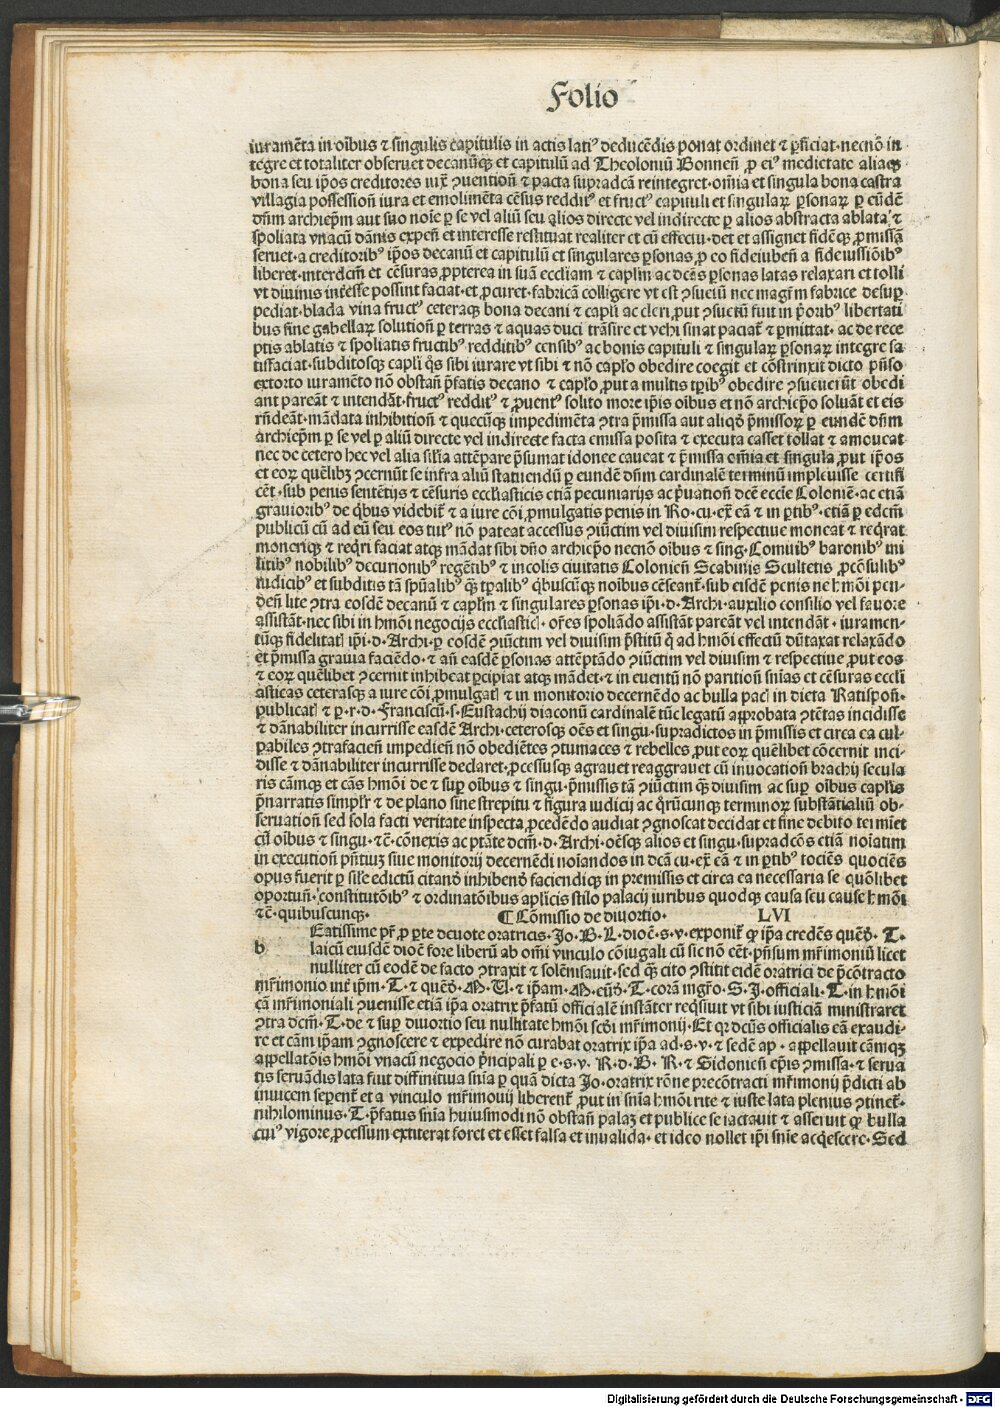 Folio
iuramēta in oībus ⁊ singulis capitulis in actis latiꝰ deducēdis ponat ordinet ⁊ ꝑficiat·necnō in
tegre et totaliter obseruet decanūqꝫ et capitulū ad Theoloniū Bonneñ ꝓ eiꝰ medietate aliaqꝫ
bona seu ip̄os creditores iux̄ ꝯuentioñ ⁊ pacta supradcā reintegret·om̄ia et singula bona castra
villagia possessioñ iura et emolimēta cēsus reddituꝰ et fructꝰ capituli et singulaꝝ ꝑsonaꝝ ꝑ eūdē
dn̄m archiep̄m aut suo noīe ꝑ se vel aliū seu alios directe vel indirecte ꝑ alios abstracta ablata ⁊
spoliata vnacū dānis expeñ et interesse restituat realiter et cū effectu·det et assignet fidēqꝫ ꝓmissā
seruet·a creditoribꝰ ip̄os decanū et capitulū et singulares ꝑsonas ꝓ eo fideiubeñ a fideiussiōibꝰ
liberet·interdcm̄ et cēsuras ꝓpterea in suā eccliam ⁊ caplm̄ ac dcēs ꝑsonas latas relaxari et tolli
vt diuinis int̄esse possint faciat·et ꝓcuret·fabricā colligere vt est ꝯsuetū nec magr̄m fabrice desuꝑ
pediat·blada vina fructꝰ ceteraqꝫ bona decani ⁊ capl̄i ac cleri ꝓut ꝯsuetū fuit in p̄oribꝰ libertati
bus sine gabellaꝝ solutioñ ꝑ terras ⁊ aquas duci trāsire et vehi sinat paciat̄ ⁊ ꝑmittat· ac de rece
ptis ablatis ⁊ spoliatis fructibꝰ redditibꝰ censibꝰ ac bonis capituli ⁊ singulaꝝ ꝑsonaꝝ integre sa
tisfaciat·subditosqꝫ capl̄i q̄s sibi iurare vt sibi ⁊ nō capl̄o obedire coegit et cōstrinxit dicto p̄nso
extorto iuramēto nō obstañ p̄fatis decano ⁊ capl̄o ꝓut a multis tp̄ibꝰ obedire ꝯsueuerūt obedi
ant pareāt ⁊ intendāt·fructꝰ reddituꝰ ⁊ ꝓuentꝰ solito more ip̄is oībus et nō archiep̄o soluāt et eis
rñdeāt·mādata inhibitioñ ⁊ quecūqꝫ impedimēta ꝯtra p̄missa aut aliqd̄ p̄missoꝝ ꝑ eundē dn̄m
archiep̄m ꝑ se vel ꝑ aliū directe vel indirecte facta emissa posita ⁊ executa casset tollat ⁊ amoueat
nec de cetero hec vel alia sil̄ia attēpare p̄sumat idonee caueat ⁊ p̄missa om̄ia et singula ꝓut ip̄os
et eoꝝ quēlibꝫ ꝯcernūt se infra aliū statuendū ꝑ eundē dn̄m cardinalē terminū impleuisse certifi
cēt·sub penis sentētijs ⁊ cēsuris eccl̄iasticis etiā pecuniarijs ac p̄uatioñ dcē eccl̄e Coloniē·ac etiā
grauioribꝰ de qbꝰ videbit̄ ⁊ a iure cōi ꝓmulgatis penis in Ro·cu·ex̄ eā ⁊ in ꝑtibꝰ·etiā ꝑ edcm̄
publicū cū ad eū seu eos tutꝰ nō pateat accessus ꝯiūctim vel diuisim respectiue moneat ⁊ reqrat
monerique ⁊ reqri faciat atqꝫ mādat sibi dn̄o archiep̄o necnō oībus ⁊ sing·Comitibꝰ baronibꝰ mi
litibꝰ nobilibꝰ decurionibꝰ regētibꝰ ⁊ incolis ciuitatis Colonieñ Scabinis Scultetis ꝓcōsulibꝰ
iudicibꝰ et subditis tā sp̄ualibꝰ q̄ꝫ tp̄alibꝰ qbuscūqꝫ noībus cēseant̄·sub eisdē penis ne hmōi pen-
deñ lite ꝯtra eosdē decanū ⁊ capl̄m ⁊ singulares ꝑsonas ip̄i·d·Archi·auxilio consilio vel fauore
assistāt·nec sibi in hmōi negocijs eccl̄iasticꝭ·oēs spoliādo assistāt pareāt vel intendāt· iuramen-
tūqꝫ fidelitatꝭ ip̄i·d·Archi·ꝑ eosdē ꝯiūctim vel diuisim p̄stitū q̄ ad hmōi effectū dūtaxat relaxādo
et p̄missa grauia faciēdo·⁊ añ easdē ꝑsonas attēptādo ꝯiūctim vel diuisim ⁊ respectiue ꝓut eos
⁊ eoꝝ quēlibet ꝯcernit inhibeat ꝑcipiat atqꝫ mādet·⁊ in euentū nō paritioñ sn̄ias et cēsuras eccl̄i
asticas ceterasqꝫ a iure cōi ꝓmulgatꝭ ⁊ in monitorio decernēdo ac bulla pacꝭ in dieta Ratispoñ·
publicatꝭ ⁊ ꝑ·r·d·Franciscū·s·Eustachij diaconū cardinalē tūc legatū approbata ꝯtētas incidisse
⁊ dānabiliter incurrisse easdē Archi·ceterosqꝫ oēs et singu·supradictos in p̄missis et circa ea cul-
pabiles ꝯtrafacieñ impedieñ nō obediētes ꝯtumaces ⁊ rebelles ꝓut eoꝝ quēlibet cōcernit inci-
disse ⁊ dānabiliter incurrisse declaret ꝓcessusqꝫ agrauet reaggrauet cū inuocatioñ brachij secula
ris cāmqꝫ et cās hmōi de ⁊ suꝑ oībus ⁊ singu·p̄missis tā ꝯiūctim q̄ꝫ diuisim ac suꝑ oībus capl̄is
p̄narratis simpl̄r ⁊ de plano sine strepitu ⁊ figura iudicij ac qrūcunqꝫ terminoꝝ substātialiū ob-
seruatioñ sed sola facti veritate inspecta ꝓcedēdo audiat ꝯgnoscat decidat et fine debito termiet
cū oībus ⁊ singu·⁊c̄·cōnexis ac ptāte dcm̄·d·Archi·oēsqꝫ alios et singu·supradcōs etiā noīatim
in executioñ p̄ntiuꝫ siue monitorij decernēdi noīandos in dcā cu·ex̄ eā ⁊ in ꝑtibꝰ tociēs quociēs
opus fuerit ꝑ sil̄e edictū citandꝭ inhibendꝭ faciendiqꝫ in premissis et circa ea necessaria se quōlibet
oportuñ·constitutōibꝰ ⁊ ordinatōibus ap̄licis stilo palacij iuribus quodqꝫ causa seu cause hmōi
⁊c̄·quibuscunqꝫ· ¶ Cōmissio de diuortio· LVI
b Eatissime pr̄ ꝓ ꝑte deuote oratricis·Jo·B·L·dioc̄·s·v·exponit̄ ꝙ ip̄a credēs quēd·T·
laicū eiusdē dioc̄ fore liberū ab om̄i vinculo cōiugali cū sic nō cēt·p̄nsum mr̄imoniū licet
nulliter cū eodē de facto ꝯtraxit ⁊ solēnisauit·sed q̄ꝫ cito ꝯstitit eidē oratrici de p̄cōtracto
mr̄imonio int̄ ip̄m·T·⁊ quēd·M·U·⁊ ip̄am·M·eūd·T·corā mgr̄o·S·J·officiali·T·in hmōi
cā mr̄imoniali ꝯuenisse etiā ip̄a oratrix p̄fatū officialē instāter reqsiuit vt sibi iusticiā ministraret
ꝯtra dcm̄·T·de ⁊ suꝑ diuortio seu nullitate hmōi scdi mr̄imonij·Et qꝛ dcūs officialis eā exaudi-
re et cām ip̄am ꝯgnoscere ⁊ expedire nō curabat oratrix ip̄a ad·s·v·⁊ sedē ap·appellauit cāmqꝫ
appellatōis hmōi vnacū negocio p̄ncipali ꝑ e·s·v· R·d·B· R·⁊ Sidonieñ ep̄is ꝯmissa·⁊ serua
tis seruādis lata fuit diffinitiua sn̄ia ꝑ quā dicta Jo·oratrix rōne precōtracti mr̄imonij p̄dicti ab
inuicem seꝑent̄ et a vinculo mr̄imonij liberent̄ ꝓut in sn̄ia hmōi rite ⁊ iuste lata plenius ꝯtinet̄·
nihilominus·T·p̄fatus sn̄ia huiusmodi nō obstañ palaꝫ et publice se iactauit ⁊ asseruit ꝙ bulla
cuiꝰ vigore ꝓcessum extiterat foret et esset falsa et inualida·et ideo nollet ip̄i sn̄ie acqescere·Sed
Digitalisierung gefördert durch die Deutsche Forschungsgemeinschaft - DFG